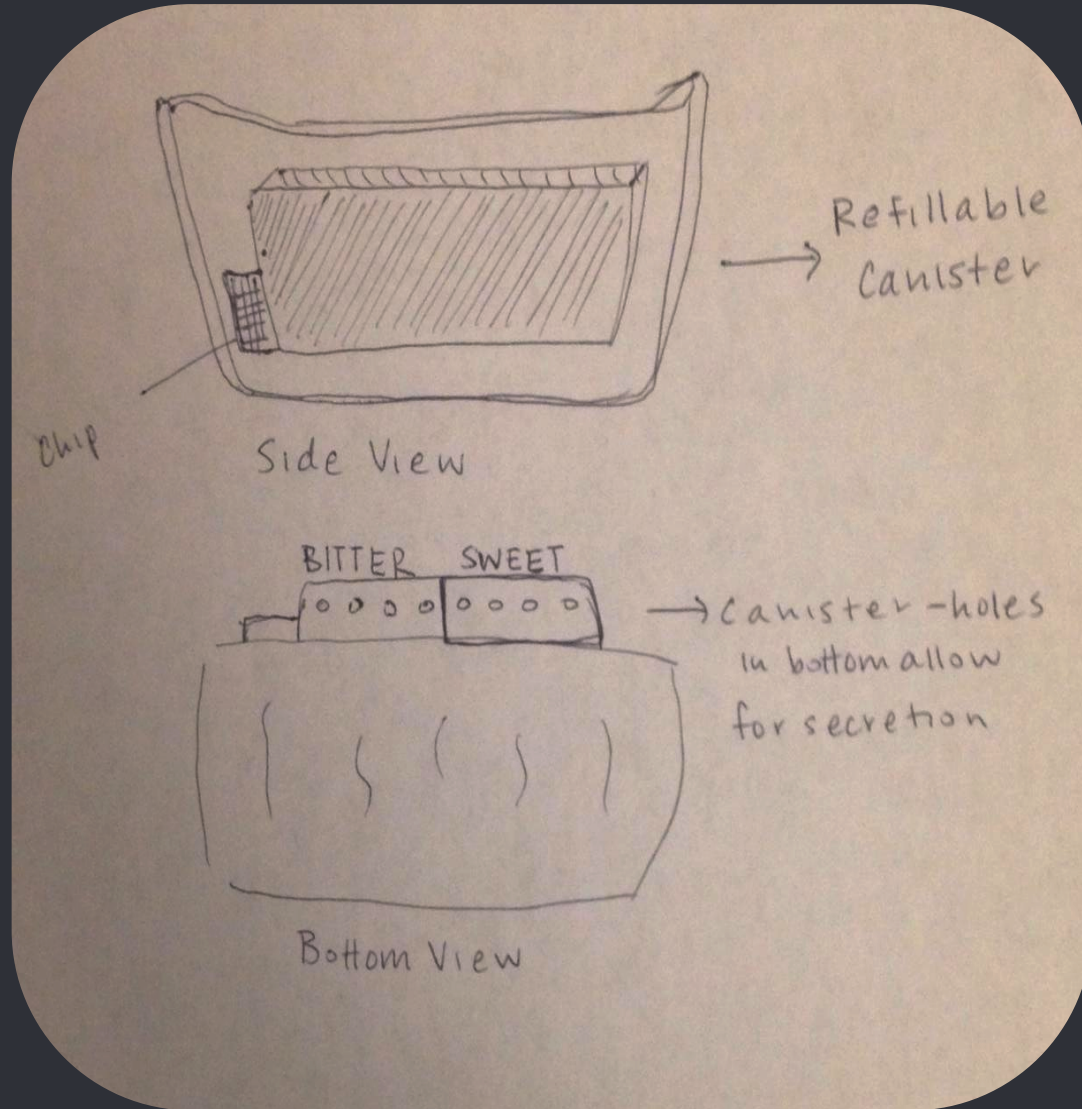 Refillable
Canister
Chip
Side View
BITTER SWEET
Canister-holes
in bottom allow
for secretion
Bottom View